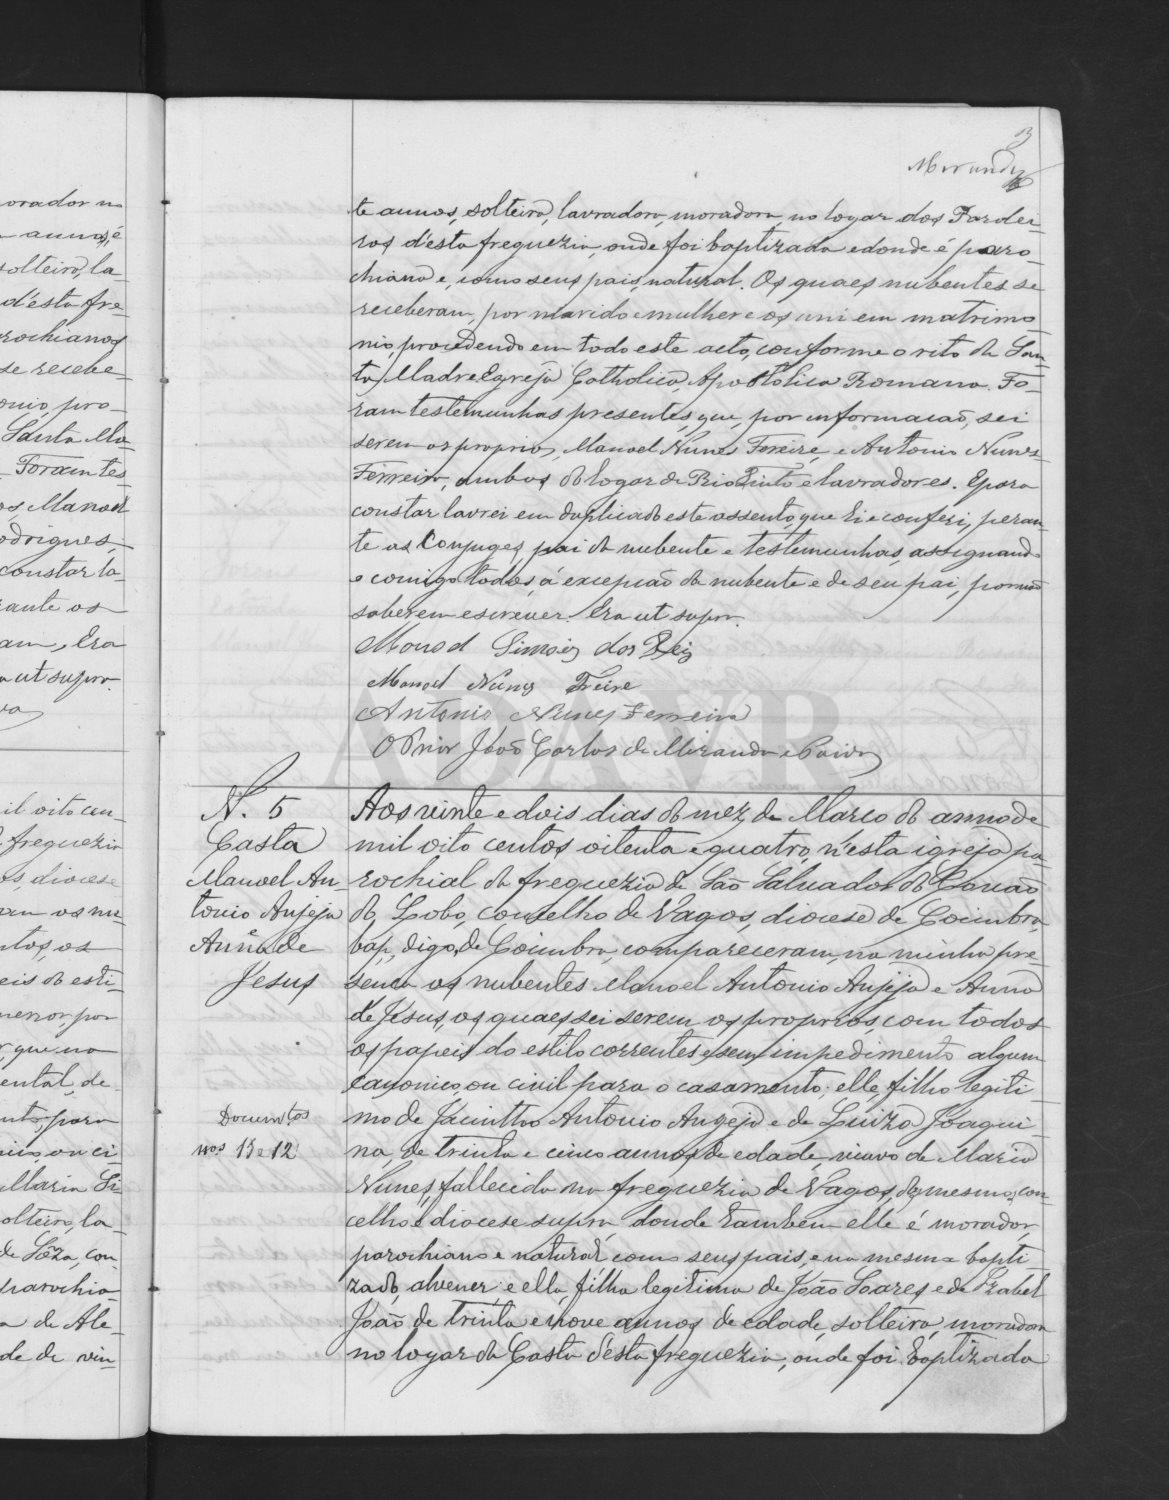 3
Miranda
te annos, solteira, lavradora, moradora no logar dos Pardei-
ros d'esta freguezia, onde foi baptizada e donde é paro-
chiana e, como seus pais, natural. Os quaes nubentes se
receberam, por marido e mulher e os uni em matrimo-
nio, procedendo em todo este acto, conforme o rito da San-
ta Madre Egreja Catholica, Apostolica Romana. Fo-
ram testemunhas presentes, que, por informação, sei
serem os proprios, Manoel Nunes Freire, e Antonio Nunes
Ferreira, ambos do logar de Rio Tinto e lavradores. E para
constar lavrei em duplicado este assento, que li e conferi, peran-
te os Conjuges, pai da nubente e testemunhas, assignando
comigo todos, á excepção da nubente e de seu pai, por não
saberem escrever. Era ut supra.
Manoel Simões dos Reis
Manoel Nunes Freire
Antonio Nunes Ferreira
O Prior João Carlos de Miranda e Paiva
N. 5
Casta
Manoel An-
tonio Anjeja
e
Anna de
Jesus
Docum.tos
nos 13 e 12
Aos vinte e dois dias do mez de Março do anno de
mil oito centos oitenta e quatro, n'esta igreja pa-
rochial da freguezia de São Salvador do Covão
do Lobo, conselho de Vagos, diocese de Coimbra,
bap, digo, de Coimbra, compareceram, na minha pre-
sença os nubentes Manoel Antonio Anjeja e Anna
de Jesus, os quaes sei serem os proprios, com todos
os papeis do estilo correntes e sem impedimento algum
canonico, ou civil para o casamento; elle, filho legiti-
mo de Jacintho Antonio Angeja e de Luiza Joaqui-
na, de trinta e cinco annos de edade, viuvo de Maria
Nunes, fallecida na freguezia de Vagos, do mesmo con-
celho e diocese supra donde tambem elle é morador,
parochiano e natural, como seus pais, e na mesma bapti-
zado, alvener: e ella, filha legitima de João Soares e de Izabel
João, de trinta e nove annos de edade, solteira, moradora
no logar da Casta d'esta freguezia, onde foi baptizada
orador no
annos, é
solteira, la-
d'esta fre-
rochianos
se recebe-
onio, pro-
Santa Ma-
Foram tes-
os, Manoel
odrigues,
constar la-
rante os
am, Era
ut supra.
il oito cen-
freguezia
diocese
am os nu-
ntos, os
eis do esti-
menor, por
que na
ental, de-
para
ou ci-
Maria Si-
olteira, la-
de Soza, con-
parochia-
a de Ale-
de de vin-
ADAVR